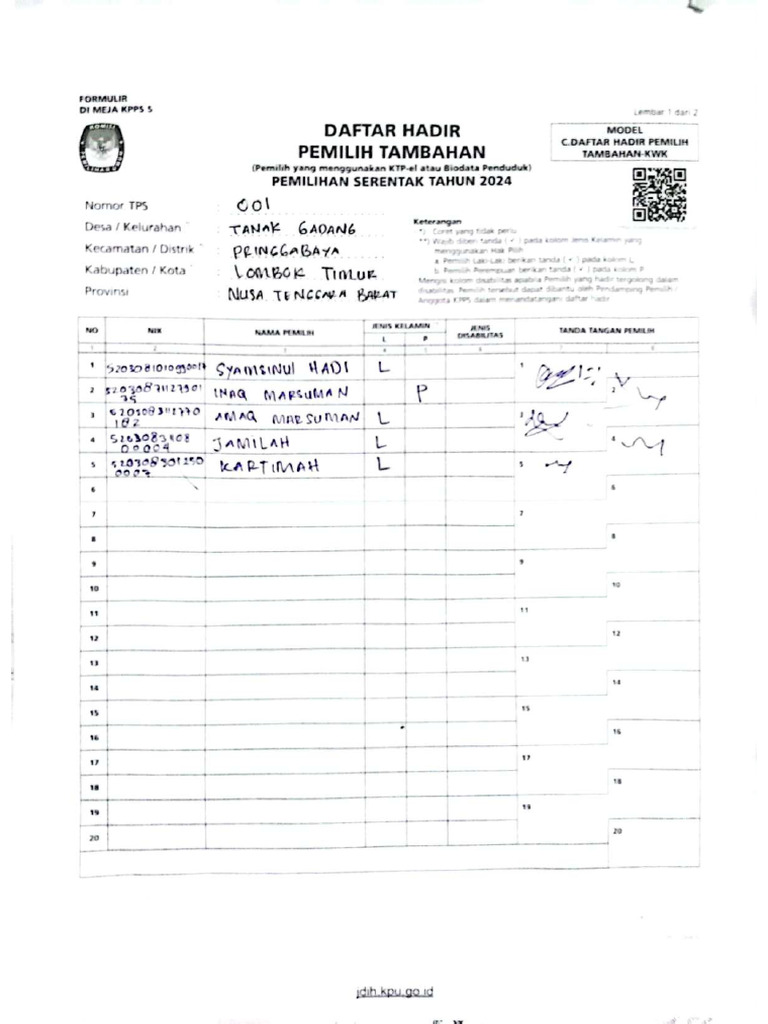 FORMULIR
DI MEJA KPPS 5
Lembar 1 dari 2
DAFTAR HADIR
PEMILIH TAMBAHAN
(Pemilih yang menggunakan KTP-el atau Biodata Penduduk)
PEMILIHAN SERENTAK TAHUN 2024
MODEL
C.DAFTAR HADIR PEMILIH
TAMBAHAN-KWK
Nomor TPS : 001
Desa / Kelurahan : TANAK GADANG
Kecamatan / Distrik : PRINGGABAYA
Kabupaten / Kota : LOMBOK TIMUR
Provinsi : NUSA TENGGARA BARAT
Keterangan
*) Coret yang tidak perlu
**) Wajib diberi tanda (✓) pada kolom Jenis Kelamin yang
menggunakan Hak Pilih
a. Pemilih Laki-Laki berikan tanda (✓) pada kolom L
b. Pemilih Perempuan berikan tanda (✓) pada kolom P
Mengisi kolom disabilitas apabila Pemilih yang hadir tergolong dalam
disabilitas. Pemilih tersebut dapat dibantu oleh Pendamping Pemilih /
Anggota KPPS dalam menandatangani daftar hadir
NO NIK NAMA PEMILIH JENIS KELAMIN JENIS DISABILITAS TANDA TANGAN PEMILIH
L P
1 2 3 4 5 6 7 8
1 SYAMSINUL HADI L 1
2 INAQ MARSUMAN P 2
3 AMAQ MARSUMAN L 3
4 JAMILAH L 4
5 KARTIMAH L 5
6 6
7 7
8 8
9 9
10 10
11 11
12 12
13 13
14 14
15 15
16 16
17 17
18 18
19 19
20 20
jdih.kpu.go.id